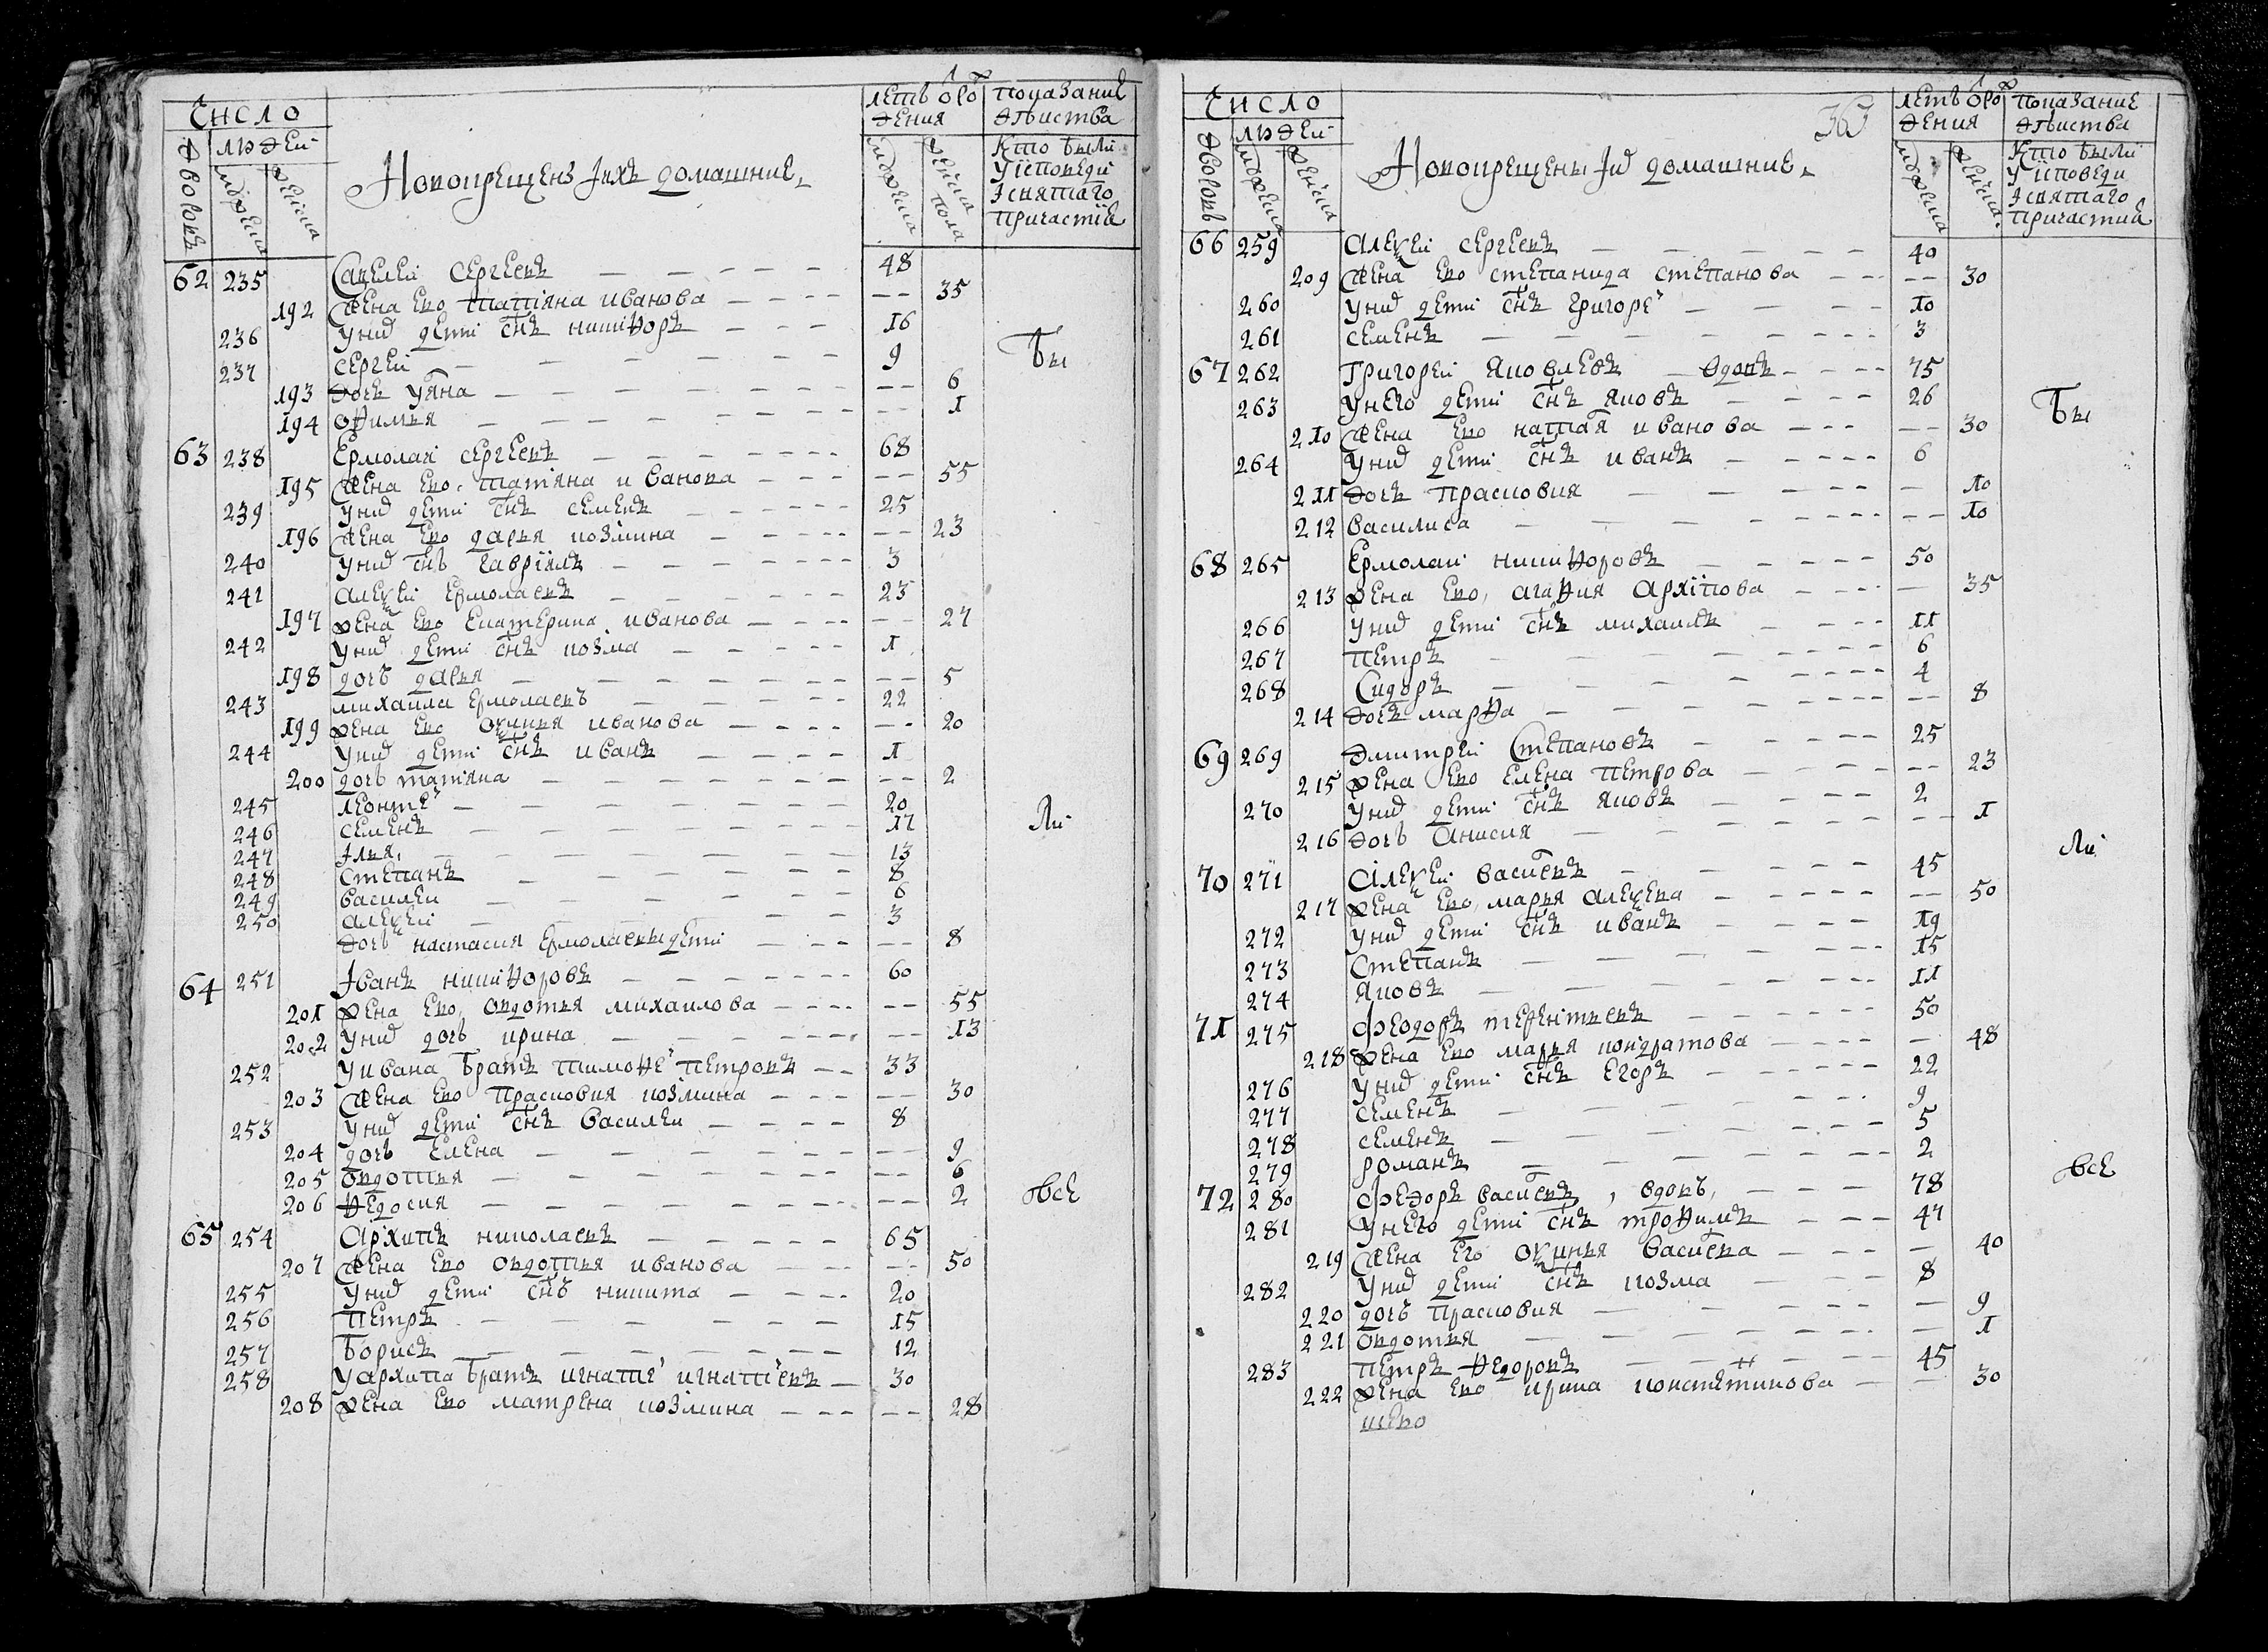 Число
людей
дворовъ
мужеска
женска
Новокрещенъ Iихъ домашние
летъ от рож
дения
мужеска
женска пола
показание
действа
Кто были
у исповеди
I святаго
причастия
62 235 Савелей Сергеевъ 48
192 жена ево татияна иванова 35
236 у них дети снъ никифоръ 16
237 сергей 9
193 дочь уляна 6
194 офимья 1
Бы
63 238 Ермолай сергеевъ 68
195 жена ево татияна иванова 55
239 у них дети снъ семенъ 25
196 жена ево дарья козмина 23
240 у них снъ гавриилъ 3
241 алексей ермолаевъ 23
197 жена ево екатерина иванова 27
242 у них дети снъ козма 1
198 дочь дарья 5
243 михаила ермолаевъ 22
199 жена ево оксинья иванова 20
244 у них дети снъ иванъ 1
200 дочь татияна 2
245 леонтей 20
246 семенъ 17
ли
247 Iлья 13
248 степанъ 8
249 василеи 6
250 алексей 3
дочь настасия ермолаевы дети 8
64 251 Iванъ никифоровъ 60
201 жена ево овдотья михаилова 55
202 у них дочь ирина 13
252 у ивана братъ тимофей петровъ 33
203 жена ево прасковия козмина 30
253 у них дети снъ василеи 8
204 дочь елена 9
205 овдотья 6
206 федосия 2
все
65 254 Архипъ николаевъ 65
207 жена ево овдотья иванова 50
255 у них дети снъ никита 20
256 петръ 15
257 борисъ 12
258 у архипа братъ игнатей игнатиевъ 30
208 жена ево матрена козмина 28
363
Число
людей
дворовъ
мужеска
женска
Новокрещены I их домашние
летъ от рож
дения
мужеска
женска
показание
действа
Кто были
у исповеди
I святаго
причастия
66 259 Алексей сергеевъ 40
209 жена ево степанида степанова 30
260 у них дети снъ григорей 10
261 семенъ 3
67 262 Григорей яковлевъ вдовъ 75
263 у него дети снъ яковъ 26
Бы
210 жена ево наталя иванова 30
264 у них дети снъ иванъ 6
211 дочь прасковия 10
212 василиса 10
68 265 Ермолай никифоровъ 50
213 жена ево агафия архипова 35
266 у них дети снъ михаилъ 11
267 петръ 6
268 Сидоръ 4
214 дочь марфа 8
69 269 Дмитрей Степановъ 25
215 жена ево елена петрова 23
270 у них дети снъ яковъ 2
216 дочь Анисия 1
ли
70 271 Алексей василевъ 45
217 жена ево марья алексева 50
272 у них дети снъ иванъ 19
273 Степанъ 15
274 яковъ 11
71 275 Феодоръ терентьевъ 50
218 жена ево марья кондратова 48
276 у них дети снъ егоръ 22
277 семенъ 9
278 семенъ 5
279 романъ 2
все
72 280 Федоръ василевъ, вдовъ 78
281 у него дети снъ трофимъ 47
219 жена его оксинья василева 40
282 у них дети снъ козма 8
220 дочь прасковия 9
221 овдотья 1
283 петръ федоровъ 45
222 жена ево ирина константинова 30